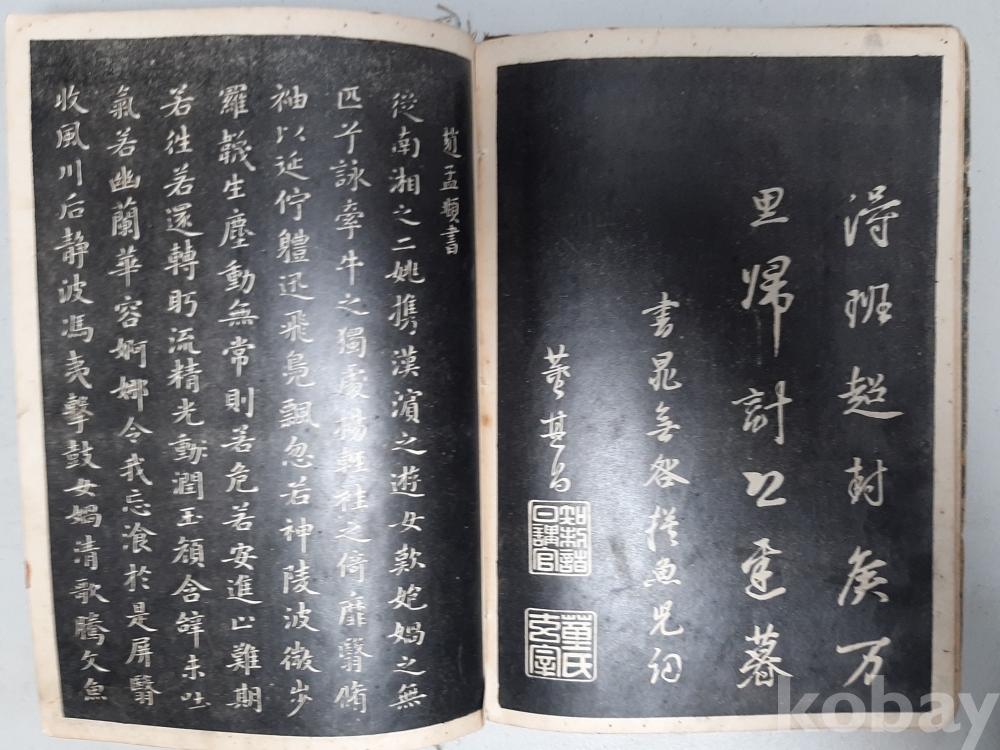 得班超封侯万
里歸計恐遲暮
書晁無咎摸魚兒詞
董其昌
知制誥日講官
董氏玄宰
趙孟頫書
從南湘之二姚攜漢濱之遊女歎匏媧之無
匹兮詠牽牛之獨處揚輕袿之倚靡翳脩
袖以延佇體迅飛鳧飄忽若神陵波微步
羅韈生塵動無常則若危若安進止難期
若往若還轉眄流精光動潤玉顏含辭未吐
氣若幽蘭華容婀娜令我忘湌於是屏翳
收風川后静波馮夷擊鼓女媧清歌騰文魚
kobay